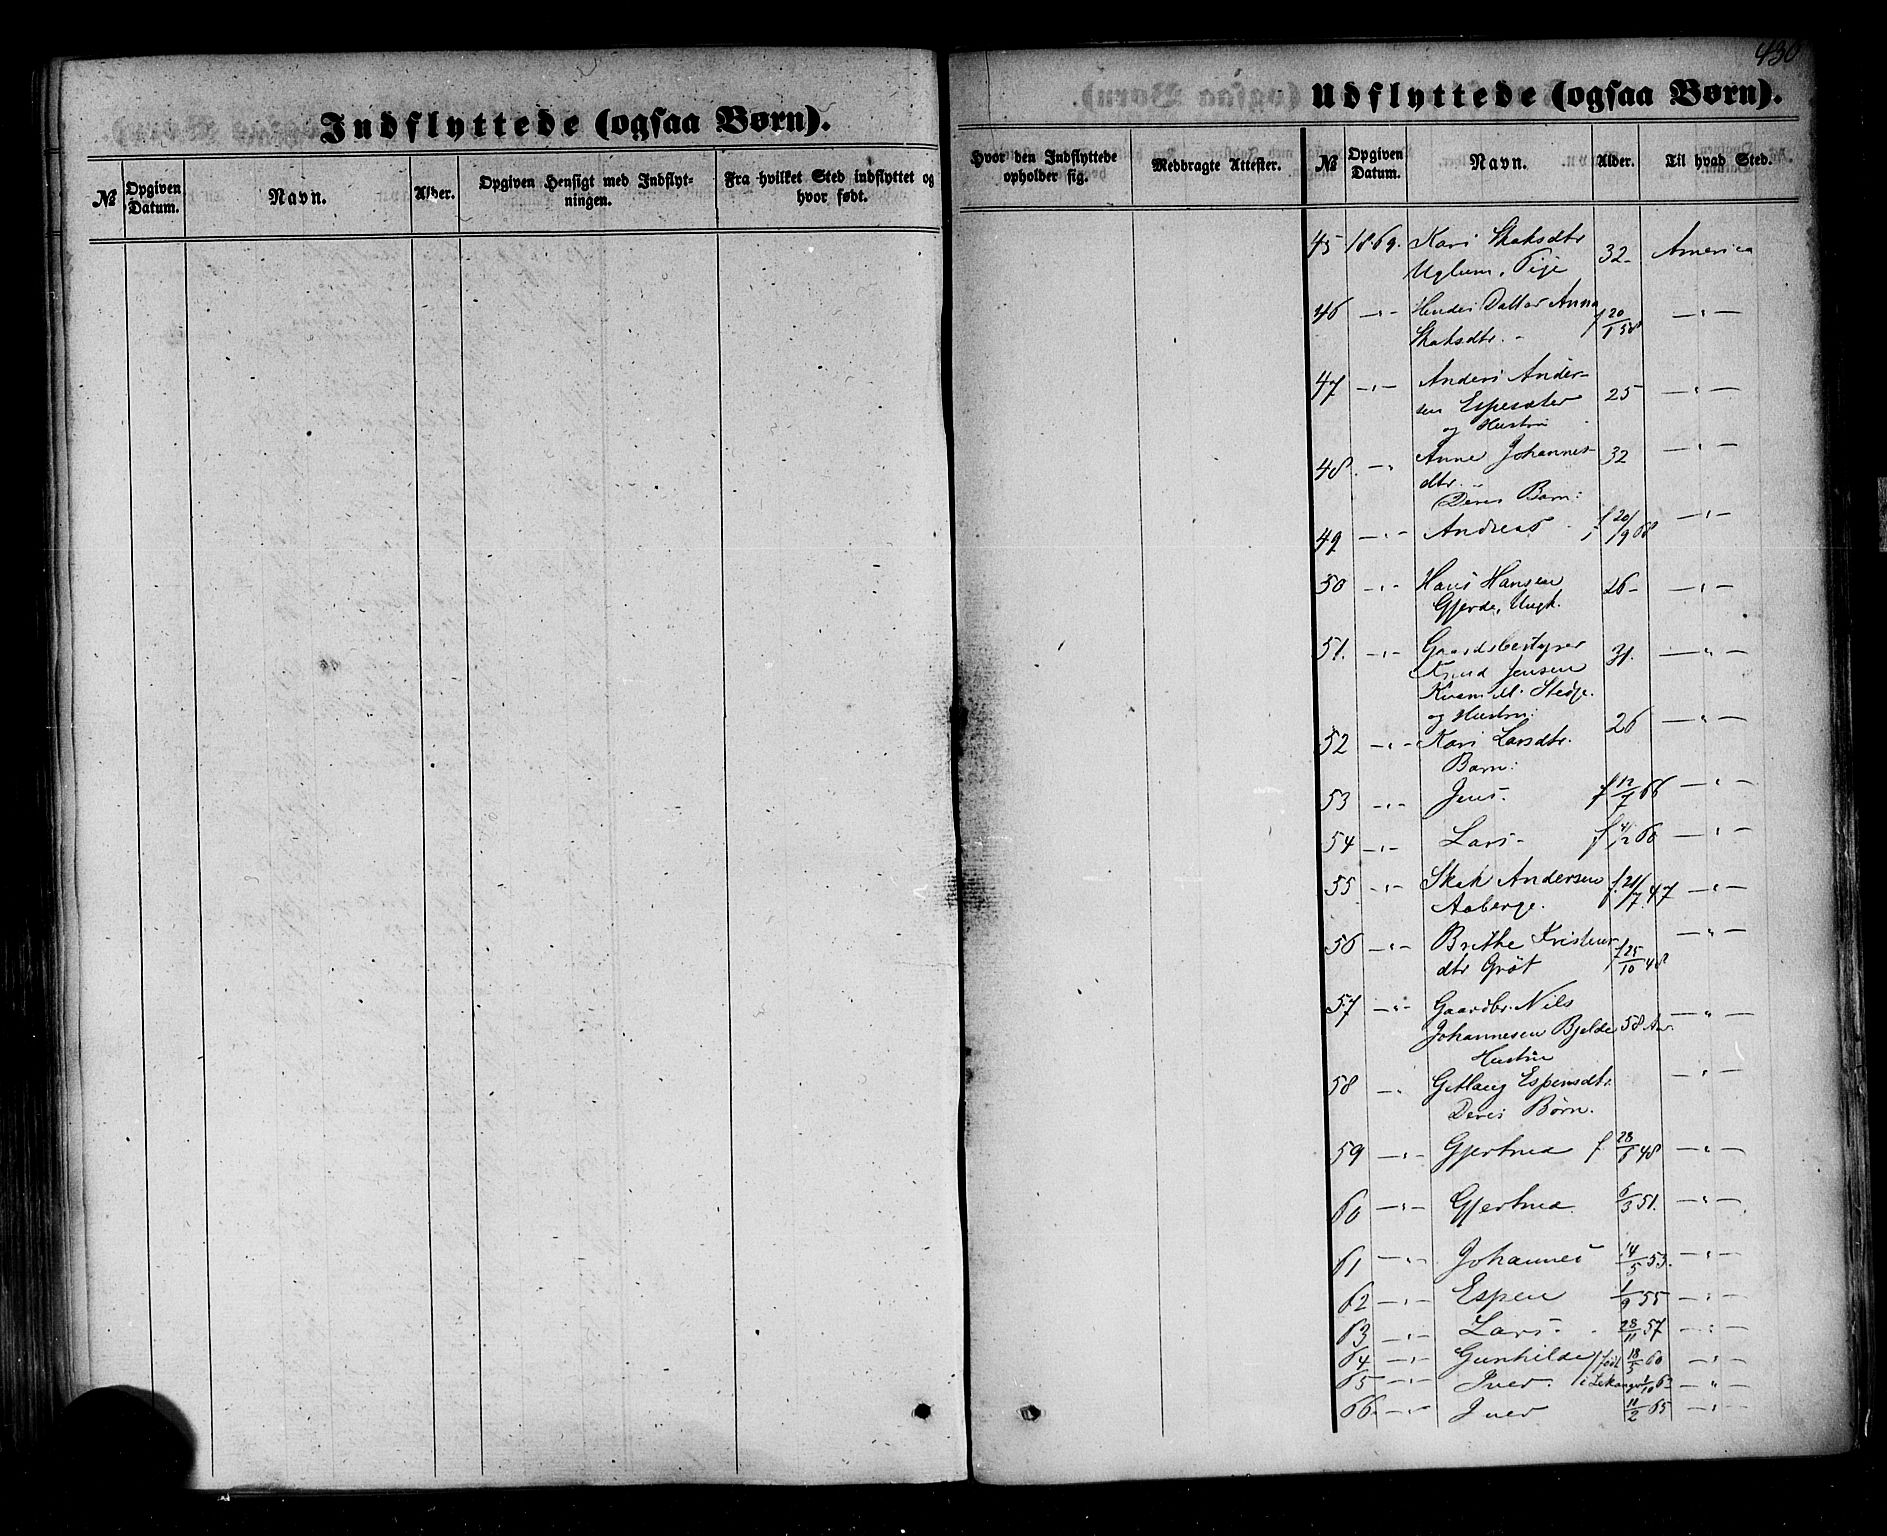 430
Indflyttede (ogsaa Børn).
№ Opgiven Datum. Navn. Alder. Opgiven Hensigt med Indflytningen. Fra hvilket Sted indflyttet og hvor født.
Udflyttede (ogsaa Børn).
Hvor den Indflyttede opholder sig. Medbragte Attester. № Opgiven Datum. Navn. Alder. Til hvad Sted.
45 1869. Kari
Uglum, Pige 32 America
46 —„— Hendes Datter Anna f 20/1 58 —„—
47 —„— Anders Ander-
sen Espesæter 25 —„—
og Hustru
48. —„ Anne Johannes- 32 —„—
dtr.
Deres Barn:
49 —„— Andreas f 20/9 68 —„—
50 —„— Hans Hansen 26 —„—
Gjerde, Ungk.
51. —„— Gaardsbestyrer 31. —„—
Knud Jensen
Kvam
og Hustru:
52 —„— Kari Larsdtr. 26 —„—
Barn:
53 —„— Jens. f 12/7 66 —„—
54 —„— Lars f —„—
55 —„— Skak Andersen f. 21/7 47 —„—
Aaberge.
56 —„— Brithe Kristens f 25/10 48 —„—
dtr Grøt
57 —„— Gaardbr. Nils
Johannesen Bjelde 58 Aar. —„—
Hustru
58 —„ Gitlaug Espensdtr. —„—
Deres Børn.
59 —„— Gjertrud f 28/6 48 —„—
60 —„— Gjertrud. 6/3 51. —„—
61 —„— Johannes 14/5 53. —„—
62 —„— Espen 1/9 55 —„—
63 —„— Lars 28/11 57 —„—
64 —„— Gunhilde født 18/3 60 —„—
65 —„— Iver. i Lekanger 1/10 63 —„—
66. —„— Iver 11/2 65 —„—